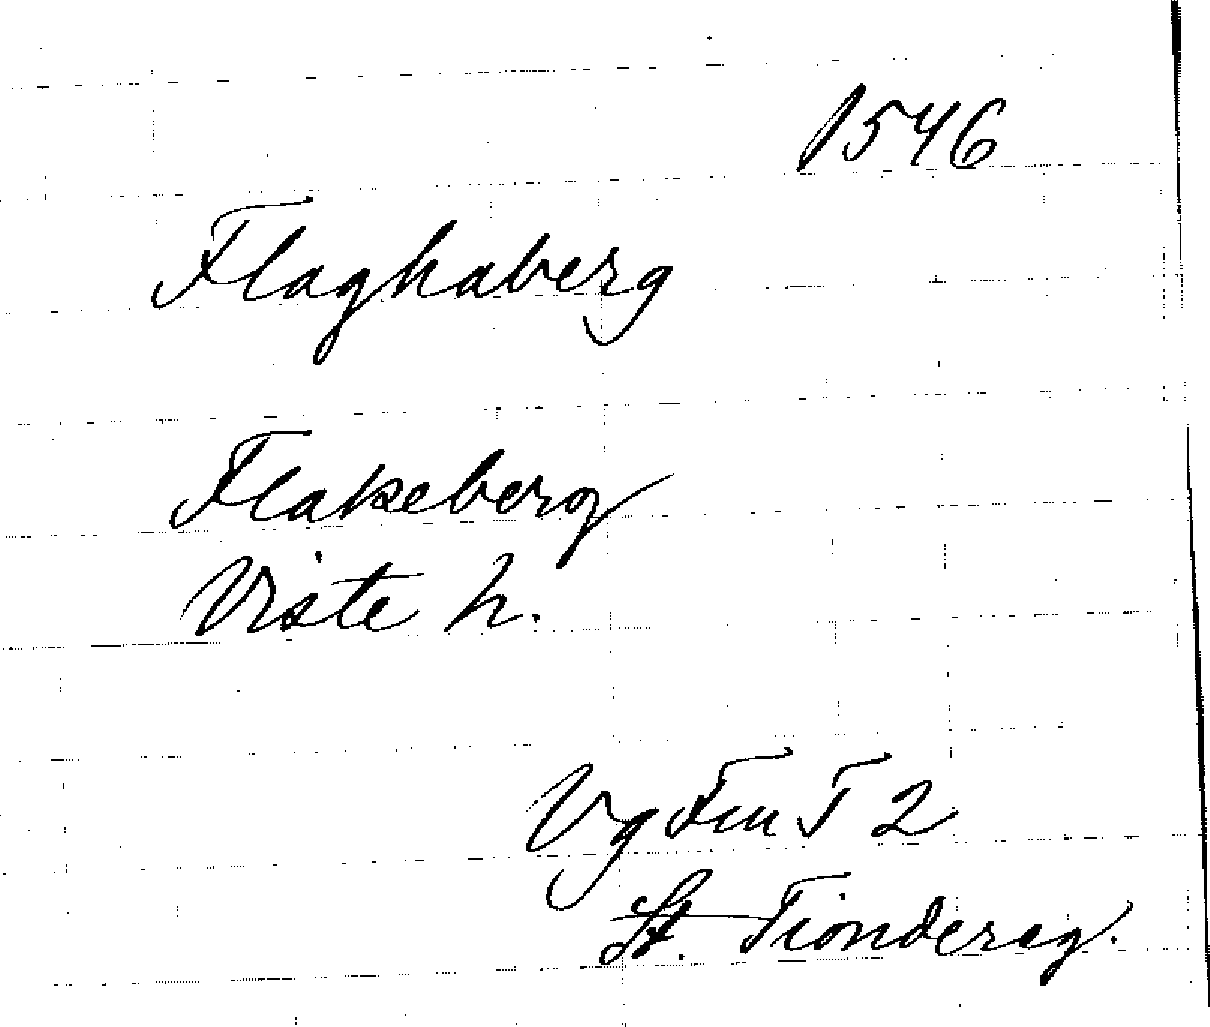 1546
Flaghaberg
Flakeberg
Viste h.
Vg T 2
St. Tiondereg.